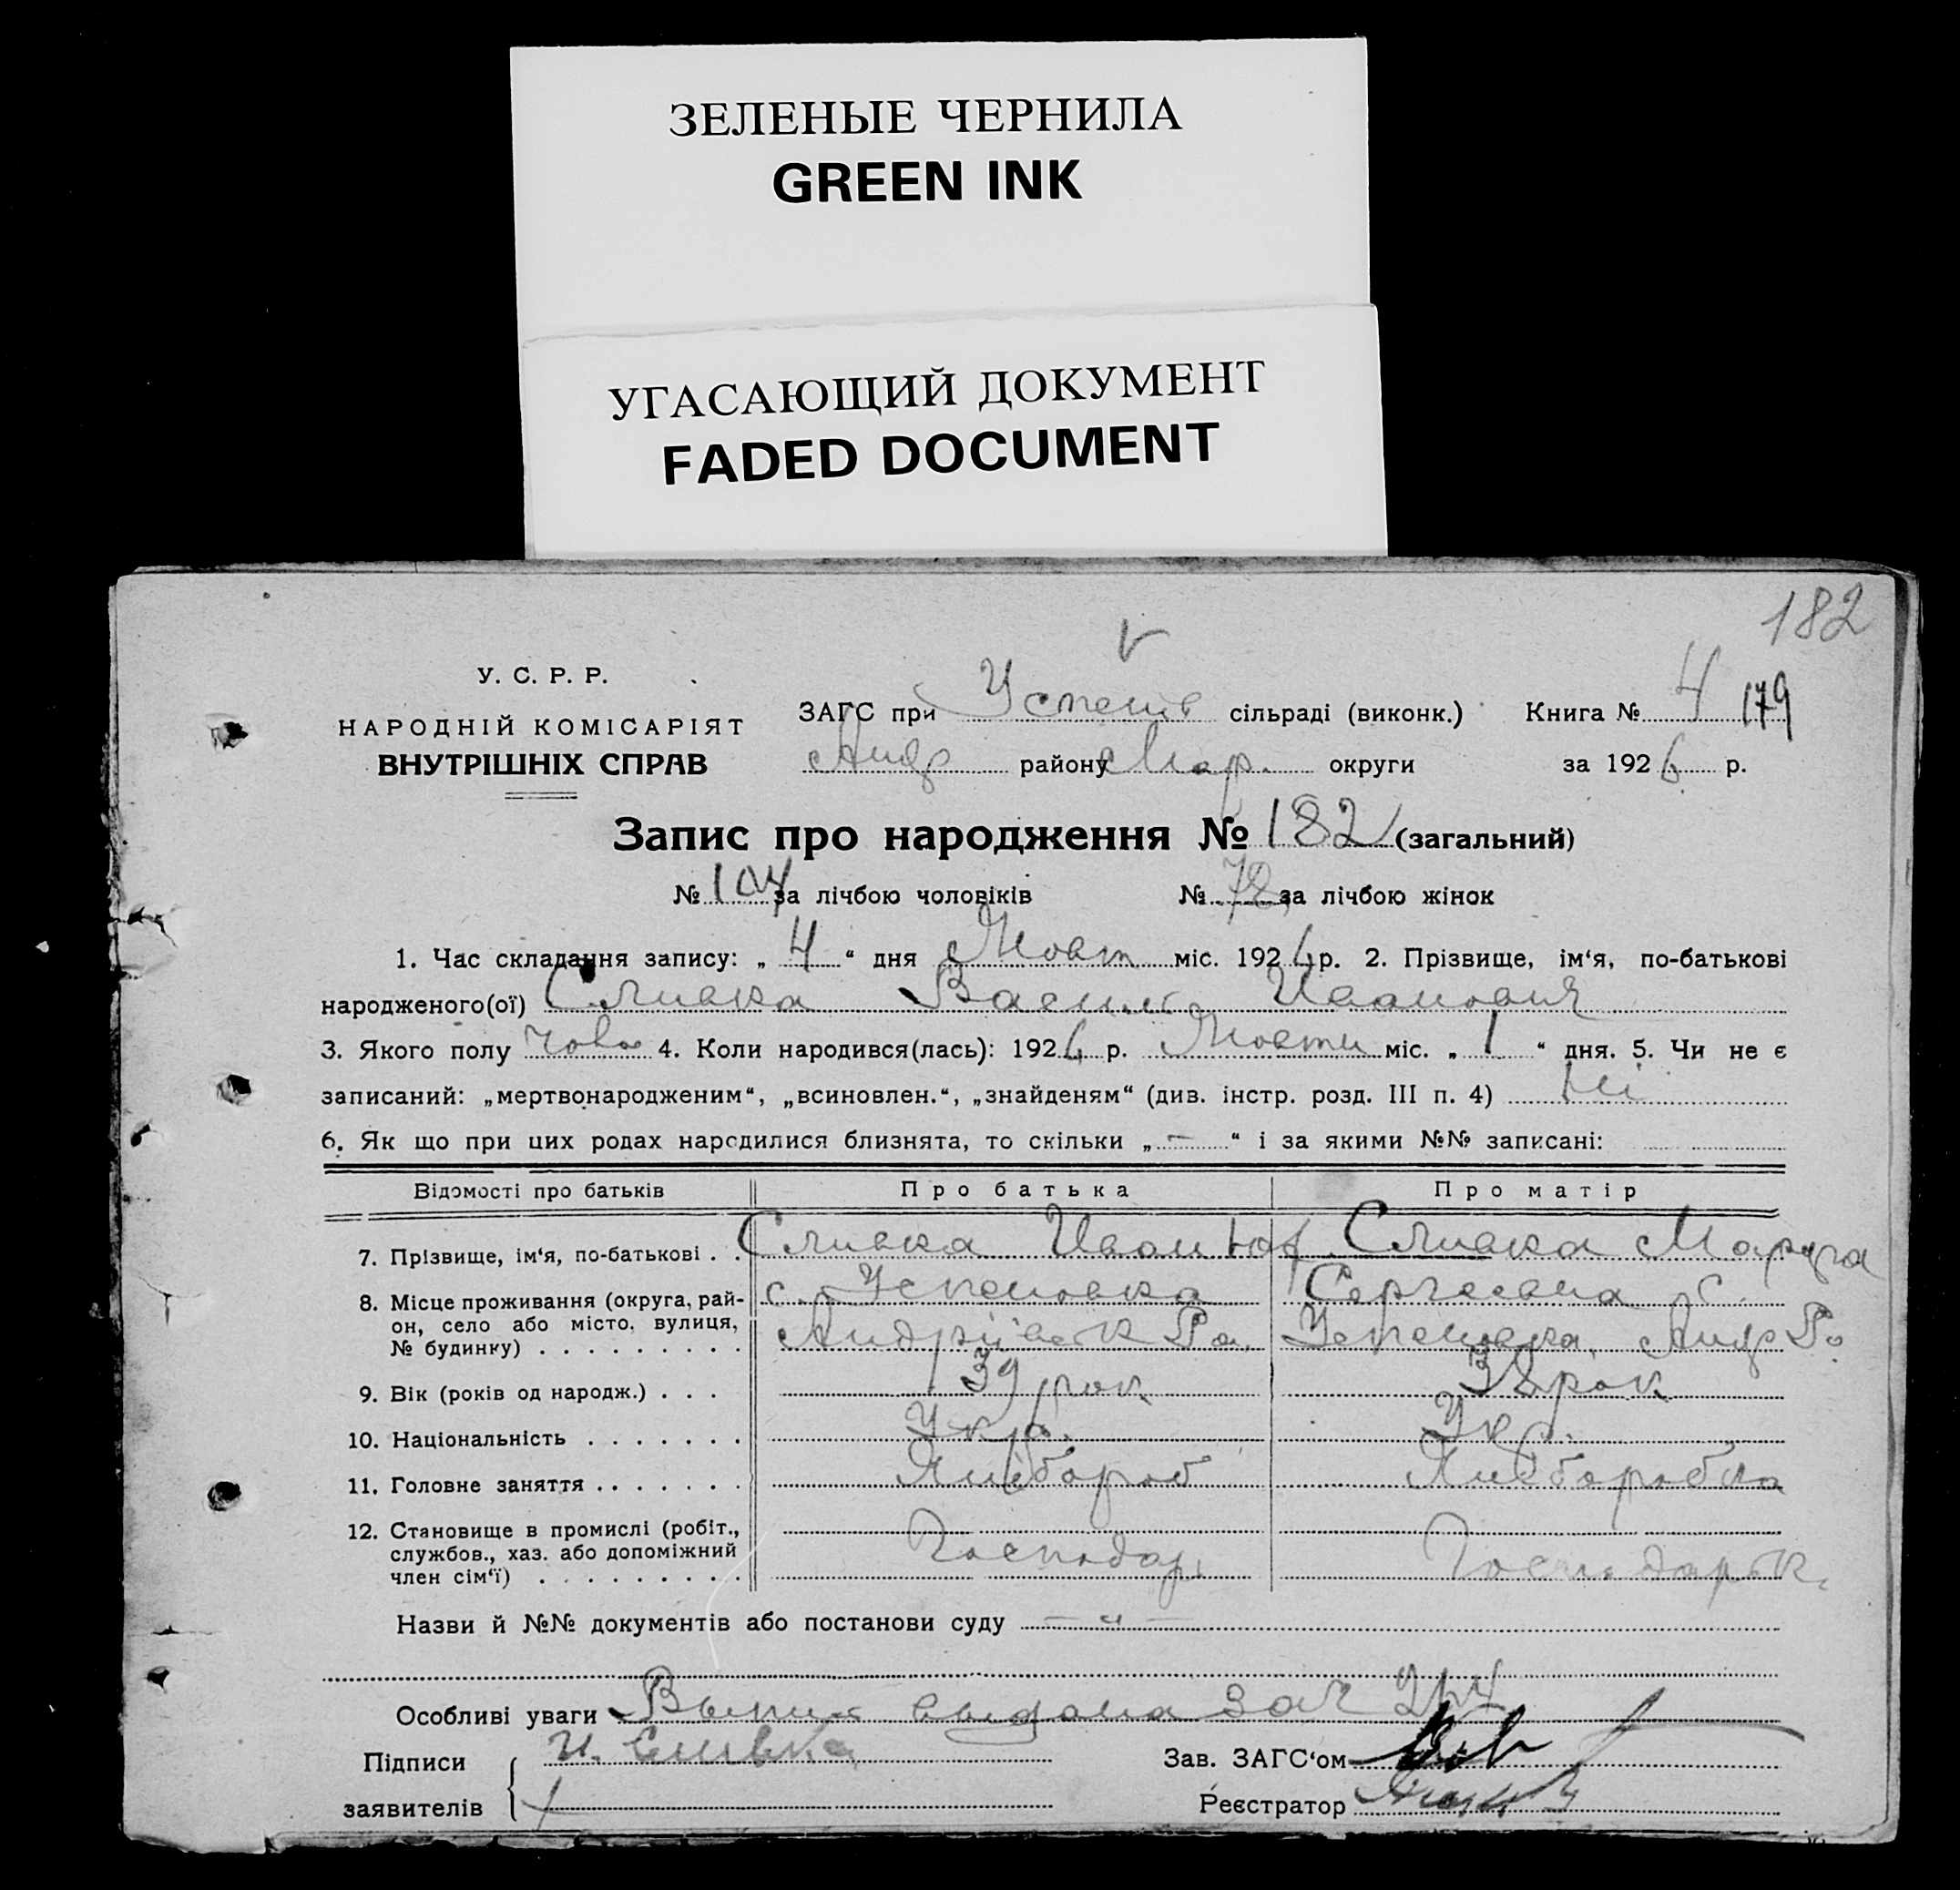 ЗЕЛЕНЫЕ ЧЕРНИЛА
GREEN INK
УГАСАЮЩИЙ ДОКУМЕНТ
FADED DOCUMENT
182
У. С. Р. Р.
НАРОДНІЙ КОМІСАРІЯТ
ВНУТРІШНІХ СПРАВ
ЗАГС при Успенів сільраді (виконк.) Книга № 4 179
Андр району Мар. округи за 1926 р.
Запис про народження № 182 (загальний)
№ 104 за лічбою чоловіків № 78 за лічбою жінок
1. Час складання запису: „ 4 “ дня Жовт міс. 1926 р. 2. Прізвище, ім‘я, по-батькові
народженого(ої) Сливка Василь Иванович
3. Якого полу 4. Коли народився(лась): 1926 р. Жовтн міс. „ 1 “ дня. 5. Чи не є
записаний: „мертвонародженим“, „всиновлен.“, „знайденям“ (див. інстр. розд. III п. 4) Ні
6. Як що при цих родах народилися близнята, то скільки „ — “ і за якими №№ записані:
Відомості про батьків Про батька Про матір
7. Прізвище, ім‘я, по-батькові . . Сливка Иван Сливка Марфа
8. Місце проживання (округа, рай- с. Успеновка Сергеевна с.
он, село або місто, вулиця, Андріївськ Ра. Успеновка Андр Ра
№ будинку) . . . . . . . . .
9. Вік (років од народж.) . . . 39 рок 38 рок
10. Національність . . . . . . . Укр. Укр.
11. Головне заняття . . . . . . . Хлібороб Хлібороб
12. Становище в промислі (робіт.,
службов., хаз. або допоміжний Господар Господарк
член сім‘ї) . . . . . . . . .
Назви й №№ документів або постанови суду — „ —
Особливі уваги Выпис выдана за № 264
Підписи И. Сливка Зав. ЗАГС‘ом
заявителів Реєстратор